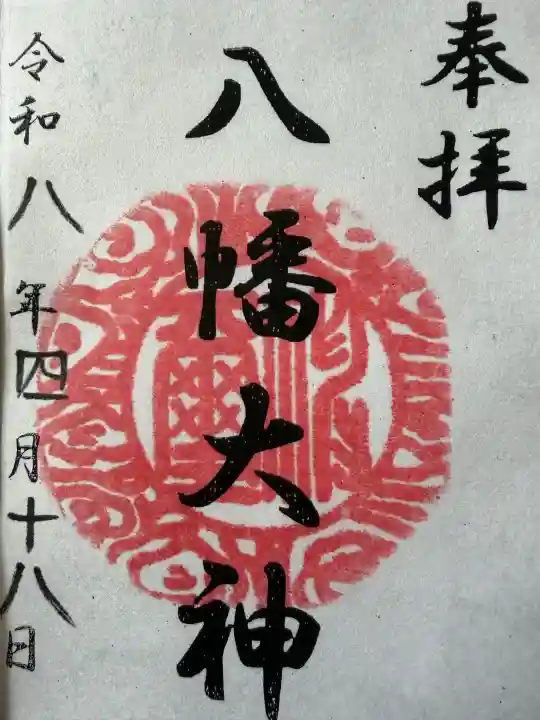 奉拝
八幡大神
令和八年四月十八日